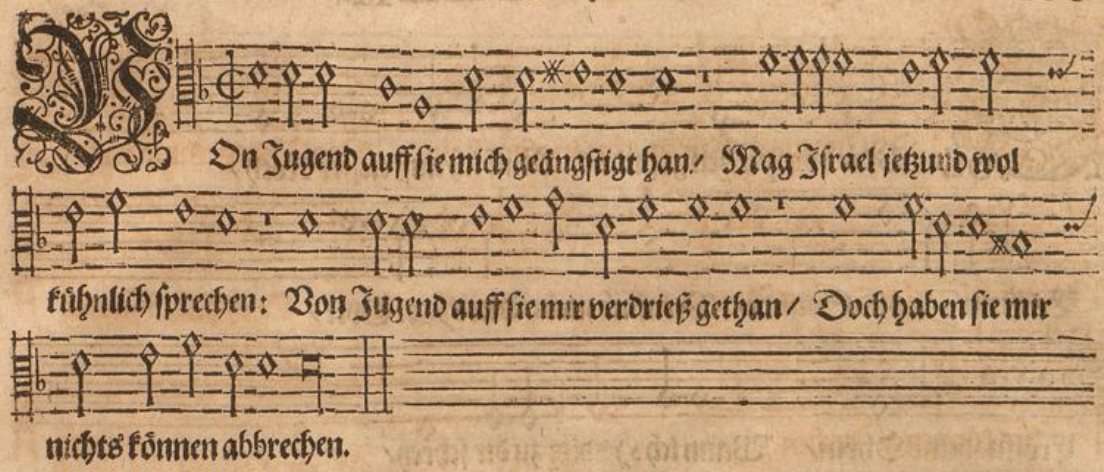 VOn Jugend auff sie mich geängstigt han/ Mag Jsrael jetzund wol
kühnlich sprechen: Von Jugend auff sie mir verdrieß gethan/ Doch haben sie mir
nichts können abbrechen.